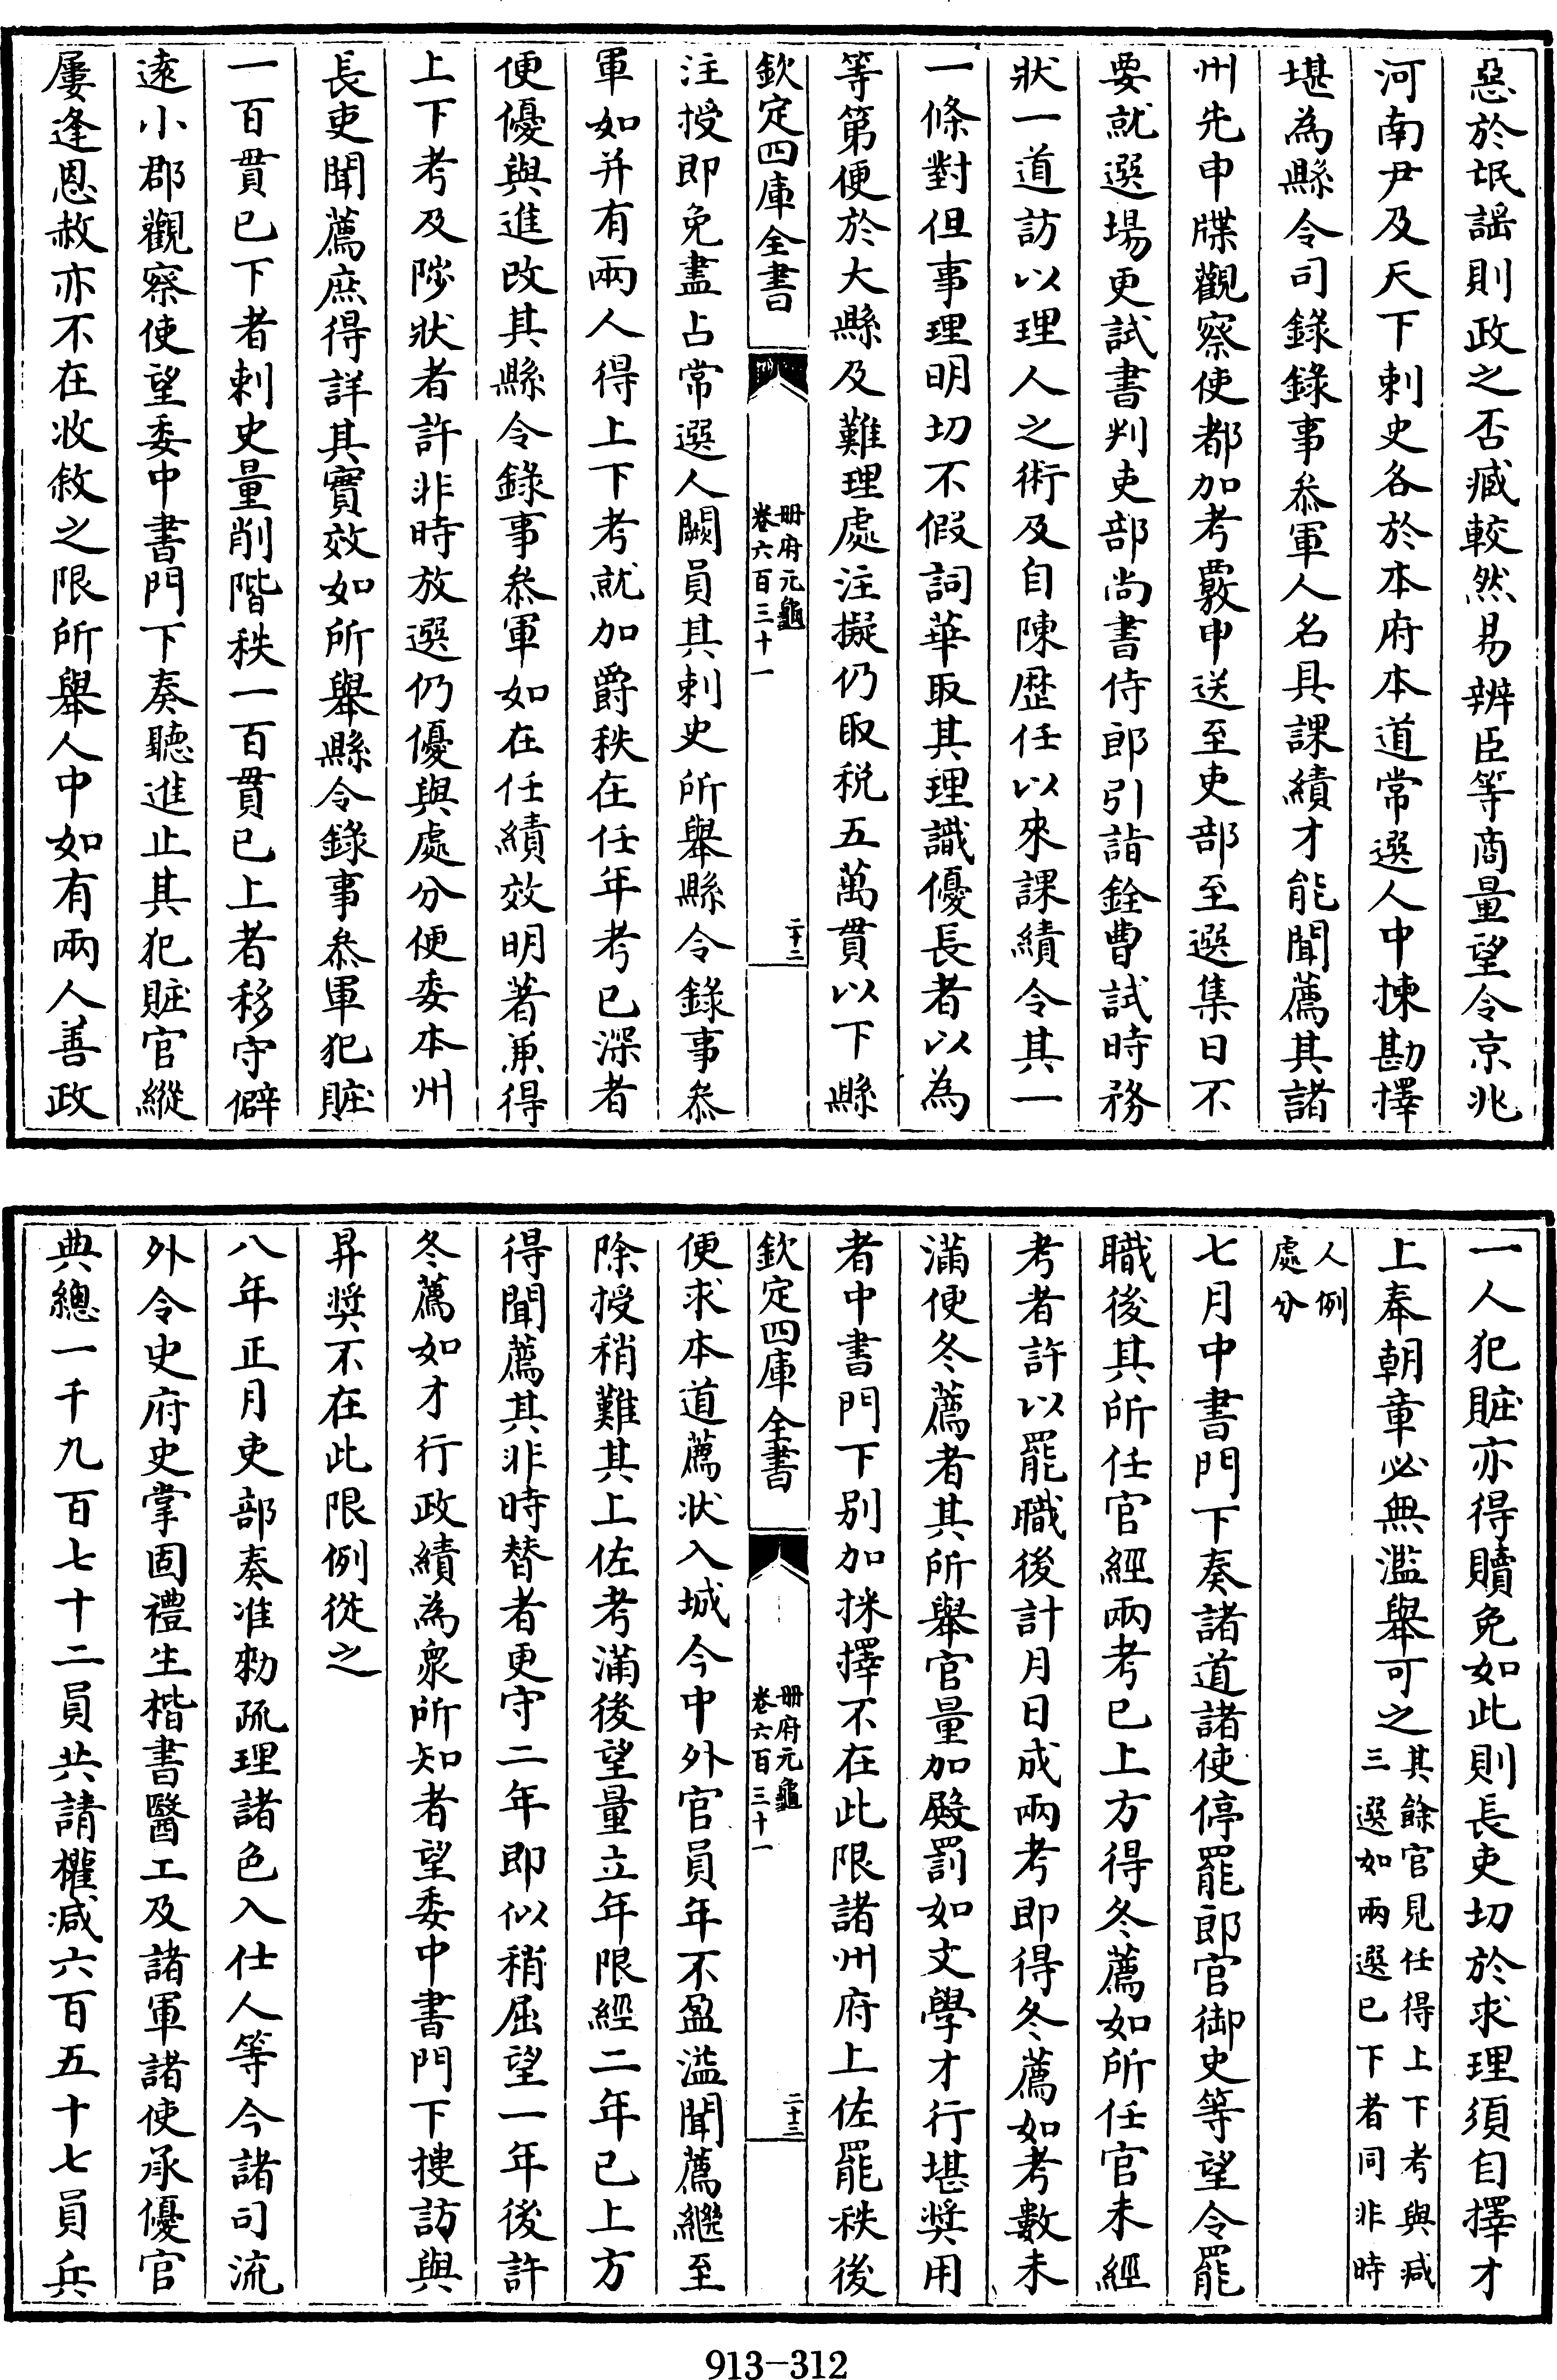 惡於氓謡則政之否臧較然易辨臣等商量望令京兆
河南尹及天下刺史各於本府本道常選人中揀勘擇
堪為縣令司錄錄事叅軍人名具課績才能聞薦其諸
州先申牒觀察使都加考覈申送至吏部至選集日不
要就選場更試書判吏部尚書侍郎引詣銓曹試時務
狀一道訪以理人之術及自陳歴任以來課績令其一
一條對但事理明切不假詞華取其理識優長者以為
等第便於大縣及難理處注擬仍取税五萬貫以下縣
欽定四庫全書
册府元龜
卷六百三十一
二十二
注授即免盡占常選人闕員其刺史所舉縣令錄事叅
軍如并有兩人得上下考就加爵秩在任年考已深者
便優與進改其縣令錄事叅軍如在任績效明著兼得
上下考及陟狀者許非時放選仍優與處分便委本州
長吏聞薦庶得詳其實效如所舉縣令錄事叅軍犯贓
一百貫已下者刺史量削階秩一百貫已上者移守僻
遠小郡觀察使望委中書門下奏聽進止其犯贓官縱
屢逢恩赦亦不在收敘之限所舉人中如有兩人善政
一人犯贓亦得贖免如此則長吏切於求理須自擇才
上奉朝章必無濫舉可之
其餘官見任得上下考與減
三選如兩選已下者同非時
人例
處分
七月中書門下奏諸道諸使停罷郎官御史等望令罷
職後其所任官經兩考已上方得冬薦如所任官未經
考者許以罷職後計月日成兩考即得冬薦如考數未
滿便冬薦者其所舉官量加殿罰如文學才行堪奬用
者中書門下别加採擇不在此限諸州府上佐罷秩後
欽定四庫全書
册府元龜
卷六百三十一
二十三
便求本道薦狀入城今中外官員年不盈溢聞薦繼至
除授稍難其上佐考滿後望量立年限經二年已上方
得聞薦其非時替者更守二年即似稍屈望一年後許
冬薦如才行政績為衆所知者望委中書門下搜訪與
昇奬不在此限例從之
八年正月吏部奏准勑疏理諸色入仕人等今諸司流
外令史府史掌固禮生楷書醫工及諸軍諸使承優官
典總一千九百七十二員共請權減六百五十七員兵
913-312